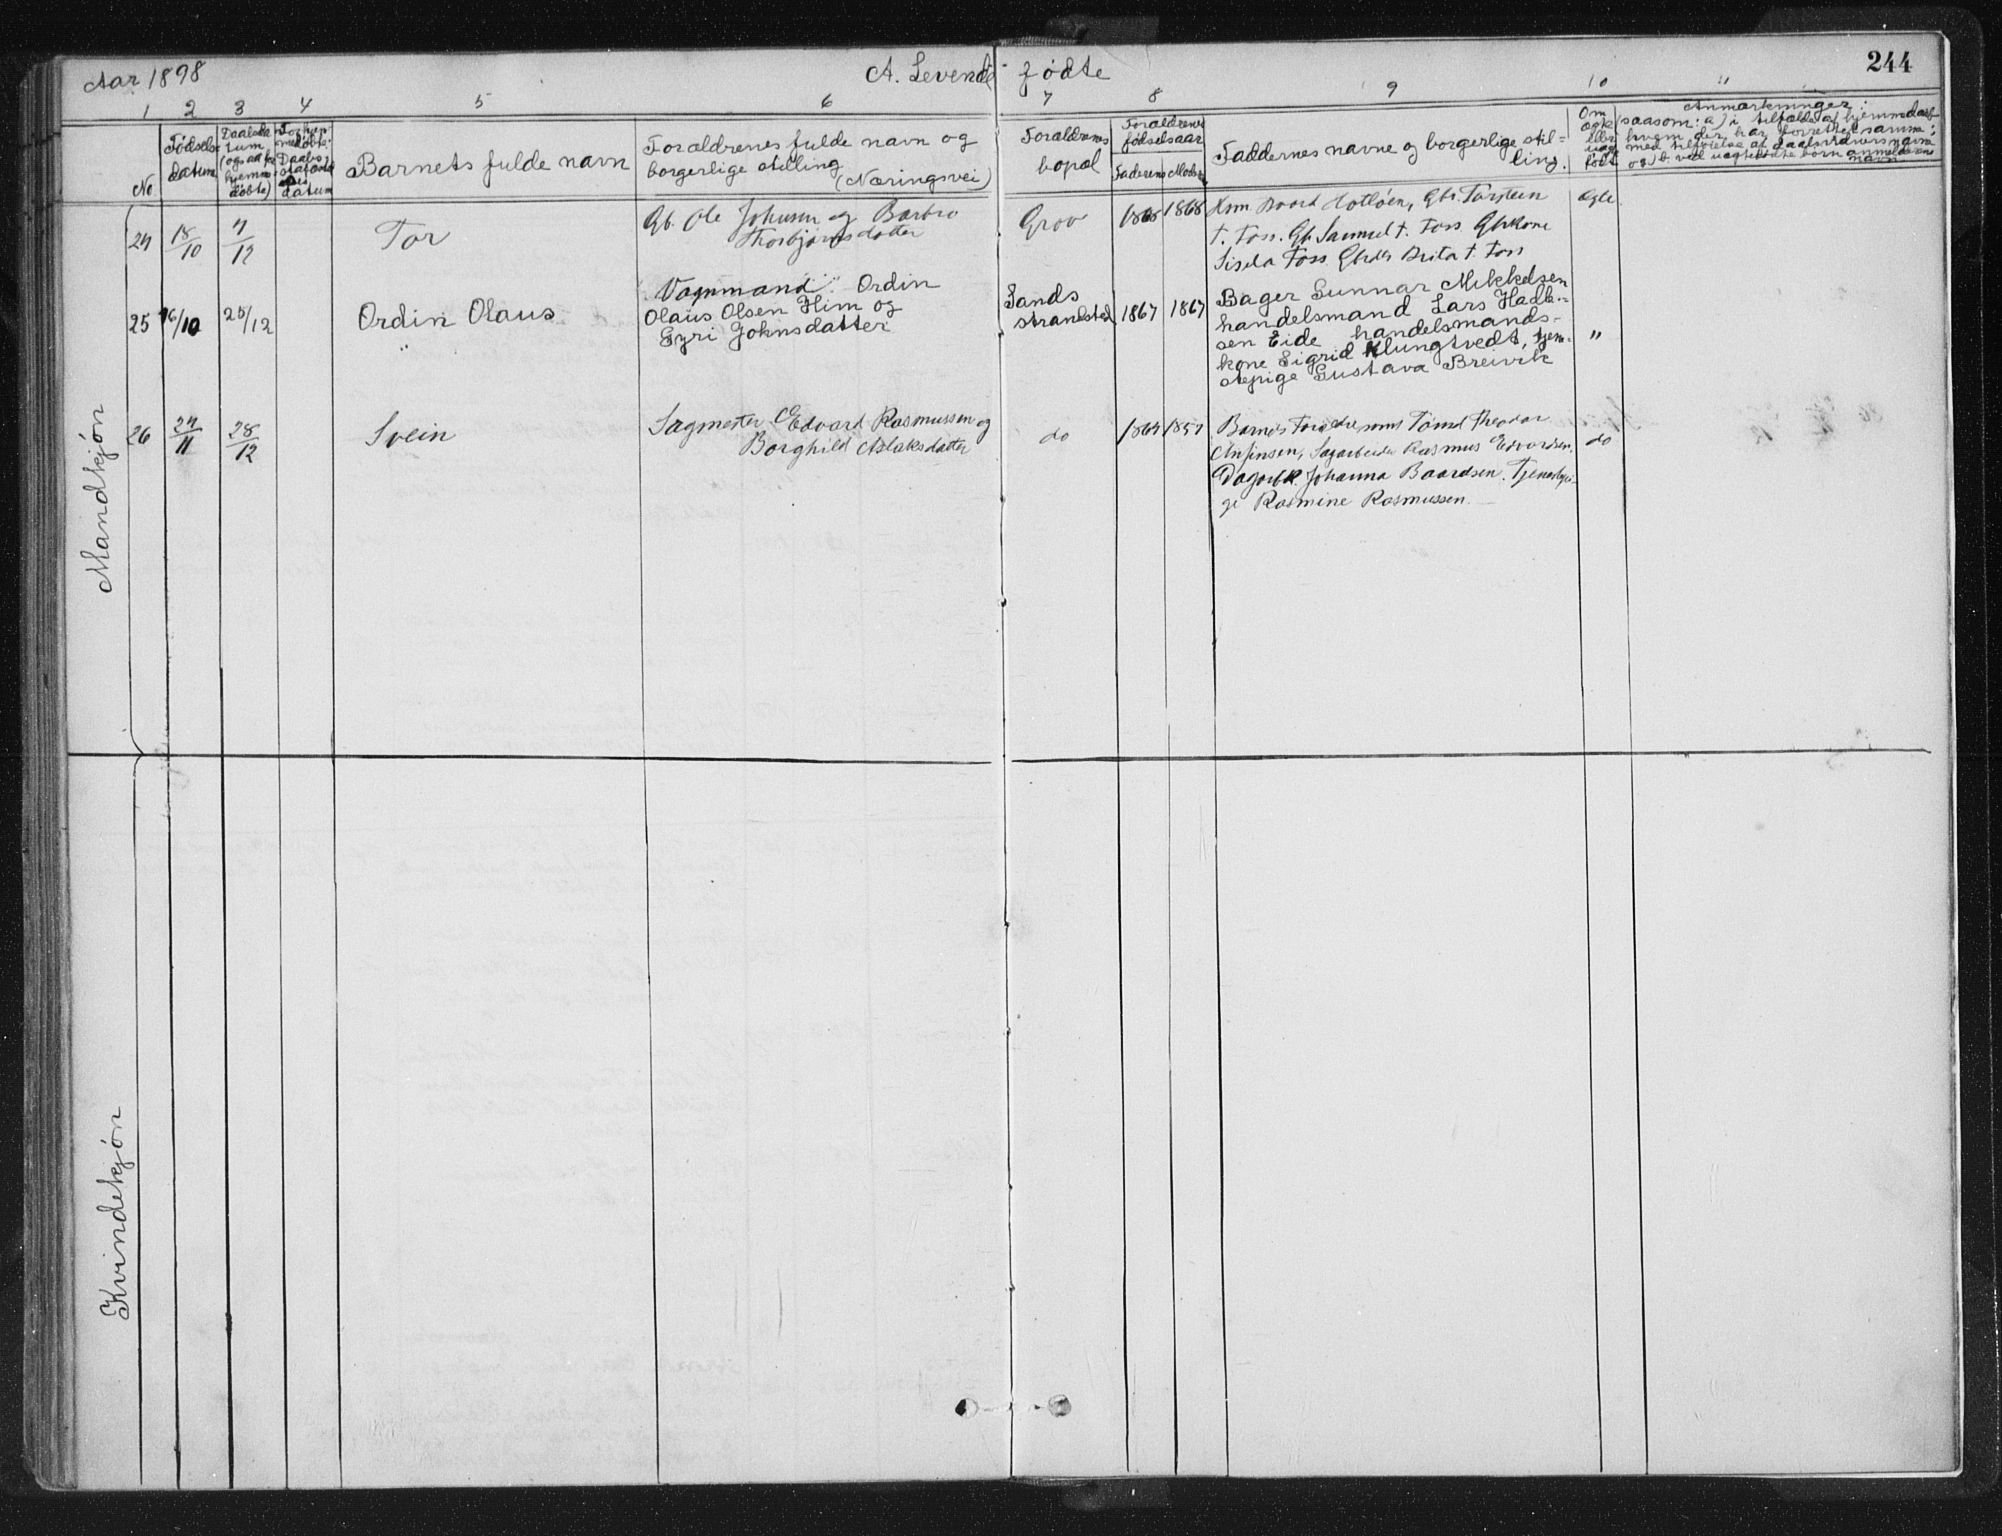 Aar 1898
A. Levende fødte
244
1 2 3 4 5 6 7 8 9 10 11
No
Fødsels datum
Daabsdatum (ogsaa for hjemmedøbte)
datum
Barnets fulde navn
Forældrenes fulde navn og
borgerlige stilling
(Næringsvei)
Forældrenes
bopæl
Forældrenes
fødselsaar
Faderens Moders
Faddernes navne og borgerlige stil=
ling.
Om ægte eller uægte født
Anmærkninger:
saasom: a) i tilfælde af hjemmedaab
hvem der har forrettet samme;
med tilføielse af daabsvidners navne
og b ved uægtefødte børn anmelderens
navn
Mandkjøn
24 18/10 4/12 Tor
Gb. Ole Johnsen og Barbro
Thorbjørnsdatter
Grov 1868 1868
Torstein
T. Foss. Gb. Samuel T. Foss Gbkone
Sisela Foss Brita T. Foss
Ægte
25 16/10 25/12 Ordin Olaus
Vognmand Ordin
Olaus Olsen Him og
Gyri Johnsdatter
Sands
strandsted 1867 1867
Bager Gunnar Mikkelsen
handelsmand Lars Hadle=
sen Eide handelsmands=
kone Sigrid Klungtvedt, tjene=
stepige Gustava Breivik
"
26 24/11 28/12 Svein
Sagmester Edvard Rasmussen og
Borghild Aslaksdatter
do 1864 1857
Barnets Forældre samt Tømd Theodor
Ansinsen, Sagarbeider Rasmus Edvardsen,
Johanna Baardsen. Tjenestepi-
ge Rasmine Rasmussen.
do
Kvindekjøn